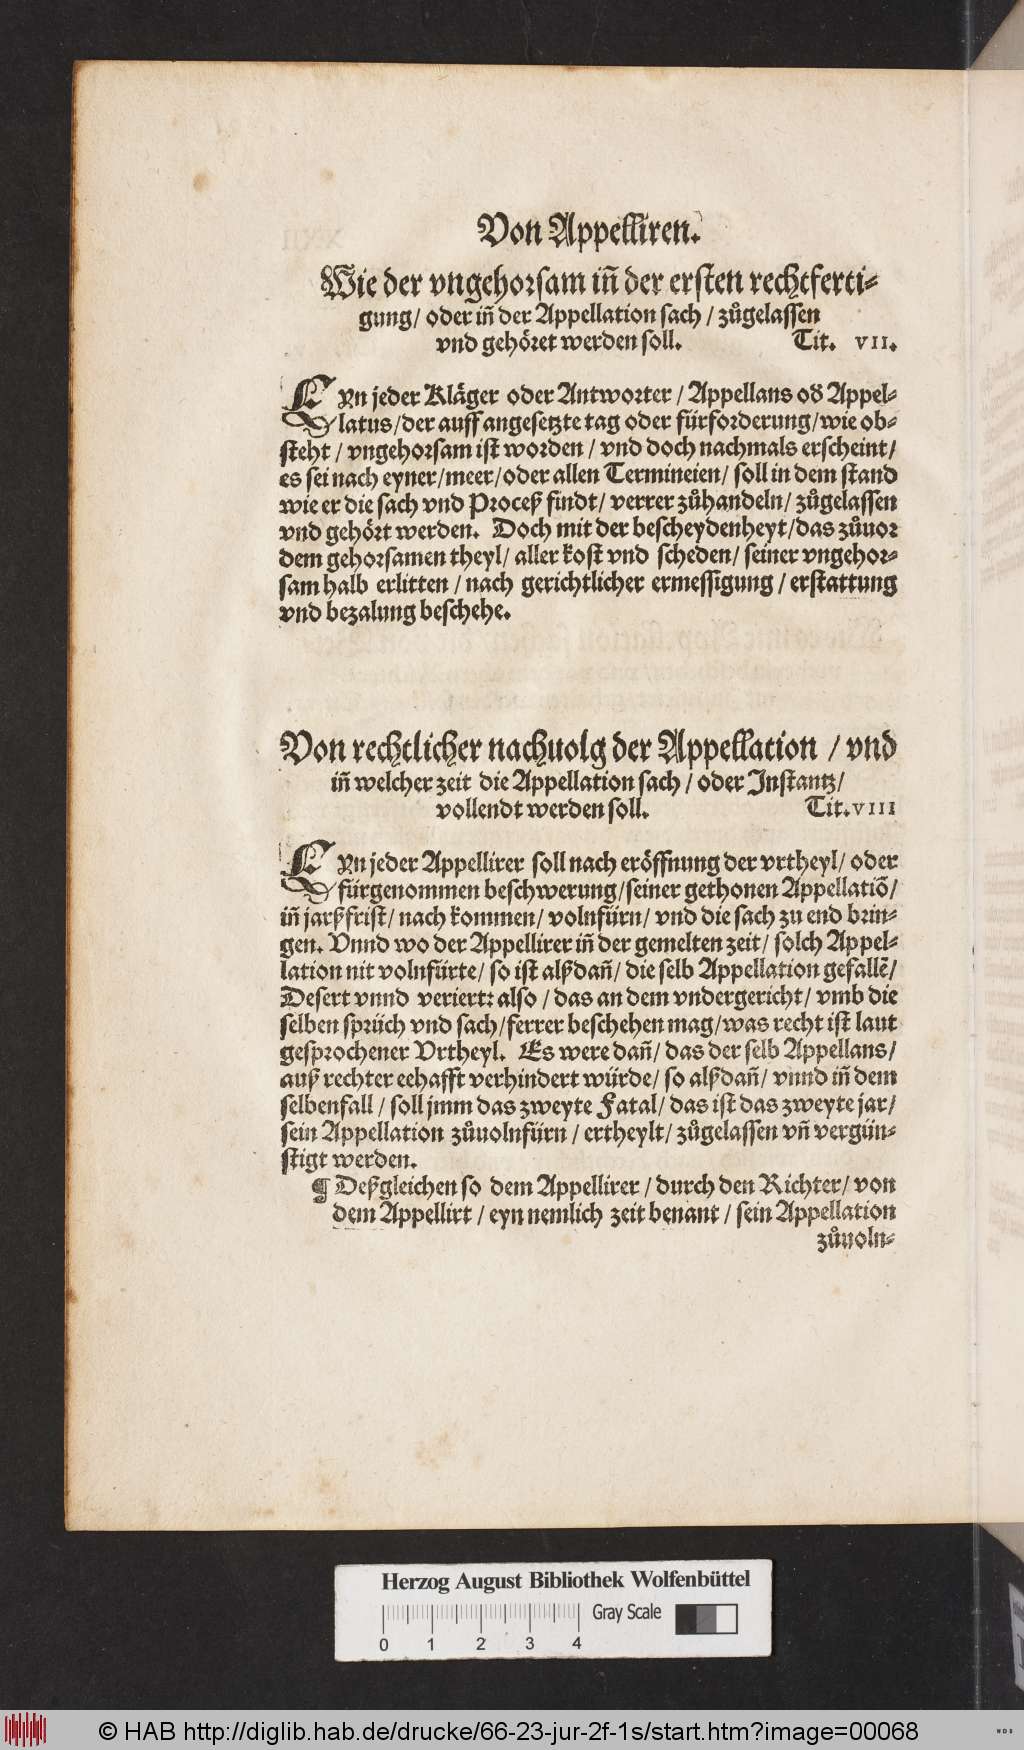 Von Appelliren.
Wie der vngehorsam iñ der ersten rechtferti⸗
gung/ oder iñ der Appellation sach / zůgelassen
vnd gehöret werden soll. Tit. VII.
EYn jeder Kläger oder Antworter / Appellans oď Appel⸗
latus/der auff angesetzte tag oder fürforderung/wie ob⸗
steht / vngehorsam ist worden / vnd doch nachmals erscheint/
es sei nach eyner/meer/oder allen Termineien/ soll in dem stand
wie er die sach vnd Proceß findt/ verrer zůhandeln/ zůgelassen
vnd gehört werden. Doch mit der bescheydenheyt/das zůuor
dem gehorsamen theyl/ aller kost vnd scheden/ seiner vngehor⸗
sam halb erlitten / nach gerichtlicher ermessigung / erstattung
vnd bezalung beschehe.
Von rechtlicher nachuolg der Appellation / vnd
iñ welcher zeit die Appellation sach / oder Instantz/
vollendt werden soll. Tit. VIII
EYn jeder Appellirer soll nach eröffnung der vrtheyl/ oder
fürgenommen beschwerung/seiner gethonen Appellatiõ/
iñ jarßfrist/ nach kommen/ volnfürn/ vnd die sach zu end brin⸗
gen. Vnnd wo der Appellirer iñ der gemelten zeit/ solch Appel⸗
lation nit volnfürte/ so ist alßdañ/ die selb Appellation gefallẽ/
Desert vnnd veriert: also / das an dem vndergericht/ vmb die
selben sprüch vnd sach/ferrer beschehen mag/was recht ist laut
gesprochener Vrtheyl. Es were dañ/ das der selb Appellans/
auß rechter eehafft verhindert würde/ so alßdañ/ vnnd iñ dem
selbenfall / soll jmm das zweyte Fatal/ das ist das zweyte jar/
sein Appellation zůuolnfürn / ertheylt/ zůgelassen vñ vergün⸗
stigt werden.
¶ Deßgleichen so dem Appellirer / durch den Richter/ von
dem Appellirt / eyn nemlich zeit benant / sein Appellation
zůuoln⸗
Herzog August Bibliothek Wolfenbüttel
Gray Scale
0 1 2 3 4
© HAB http://diglib.hab.de/drucke/66-23-jur-2f-1s/start.htm?image=00068